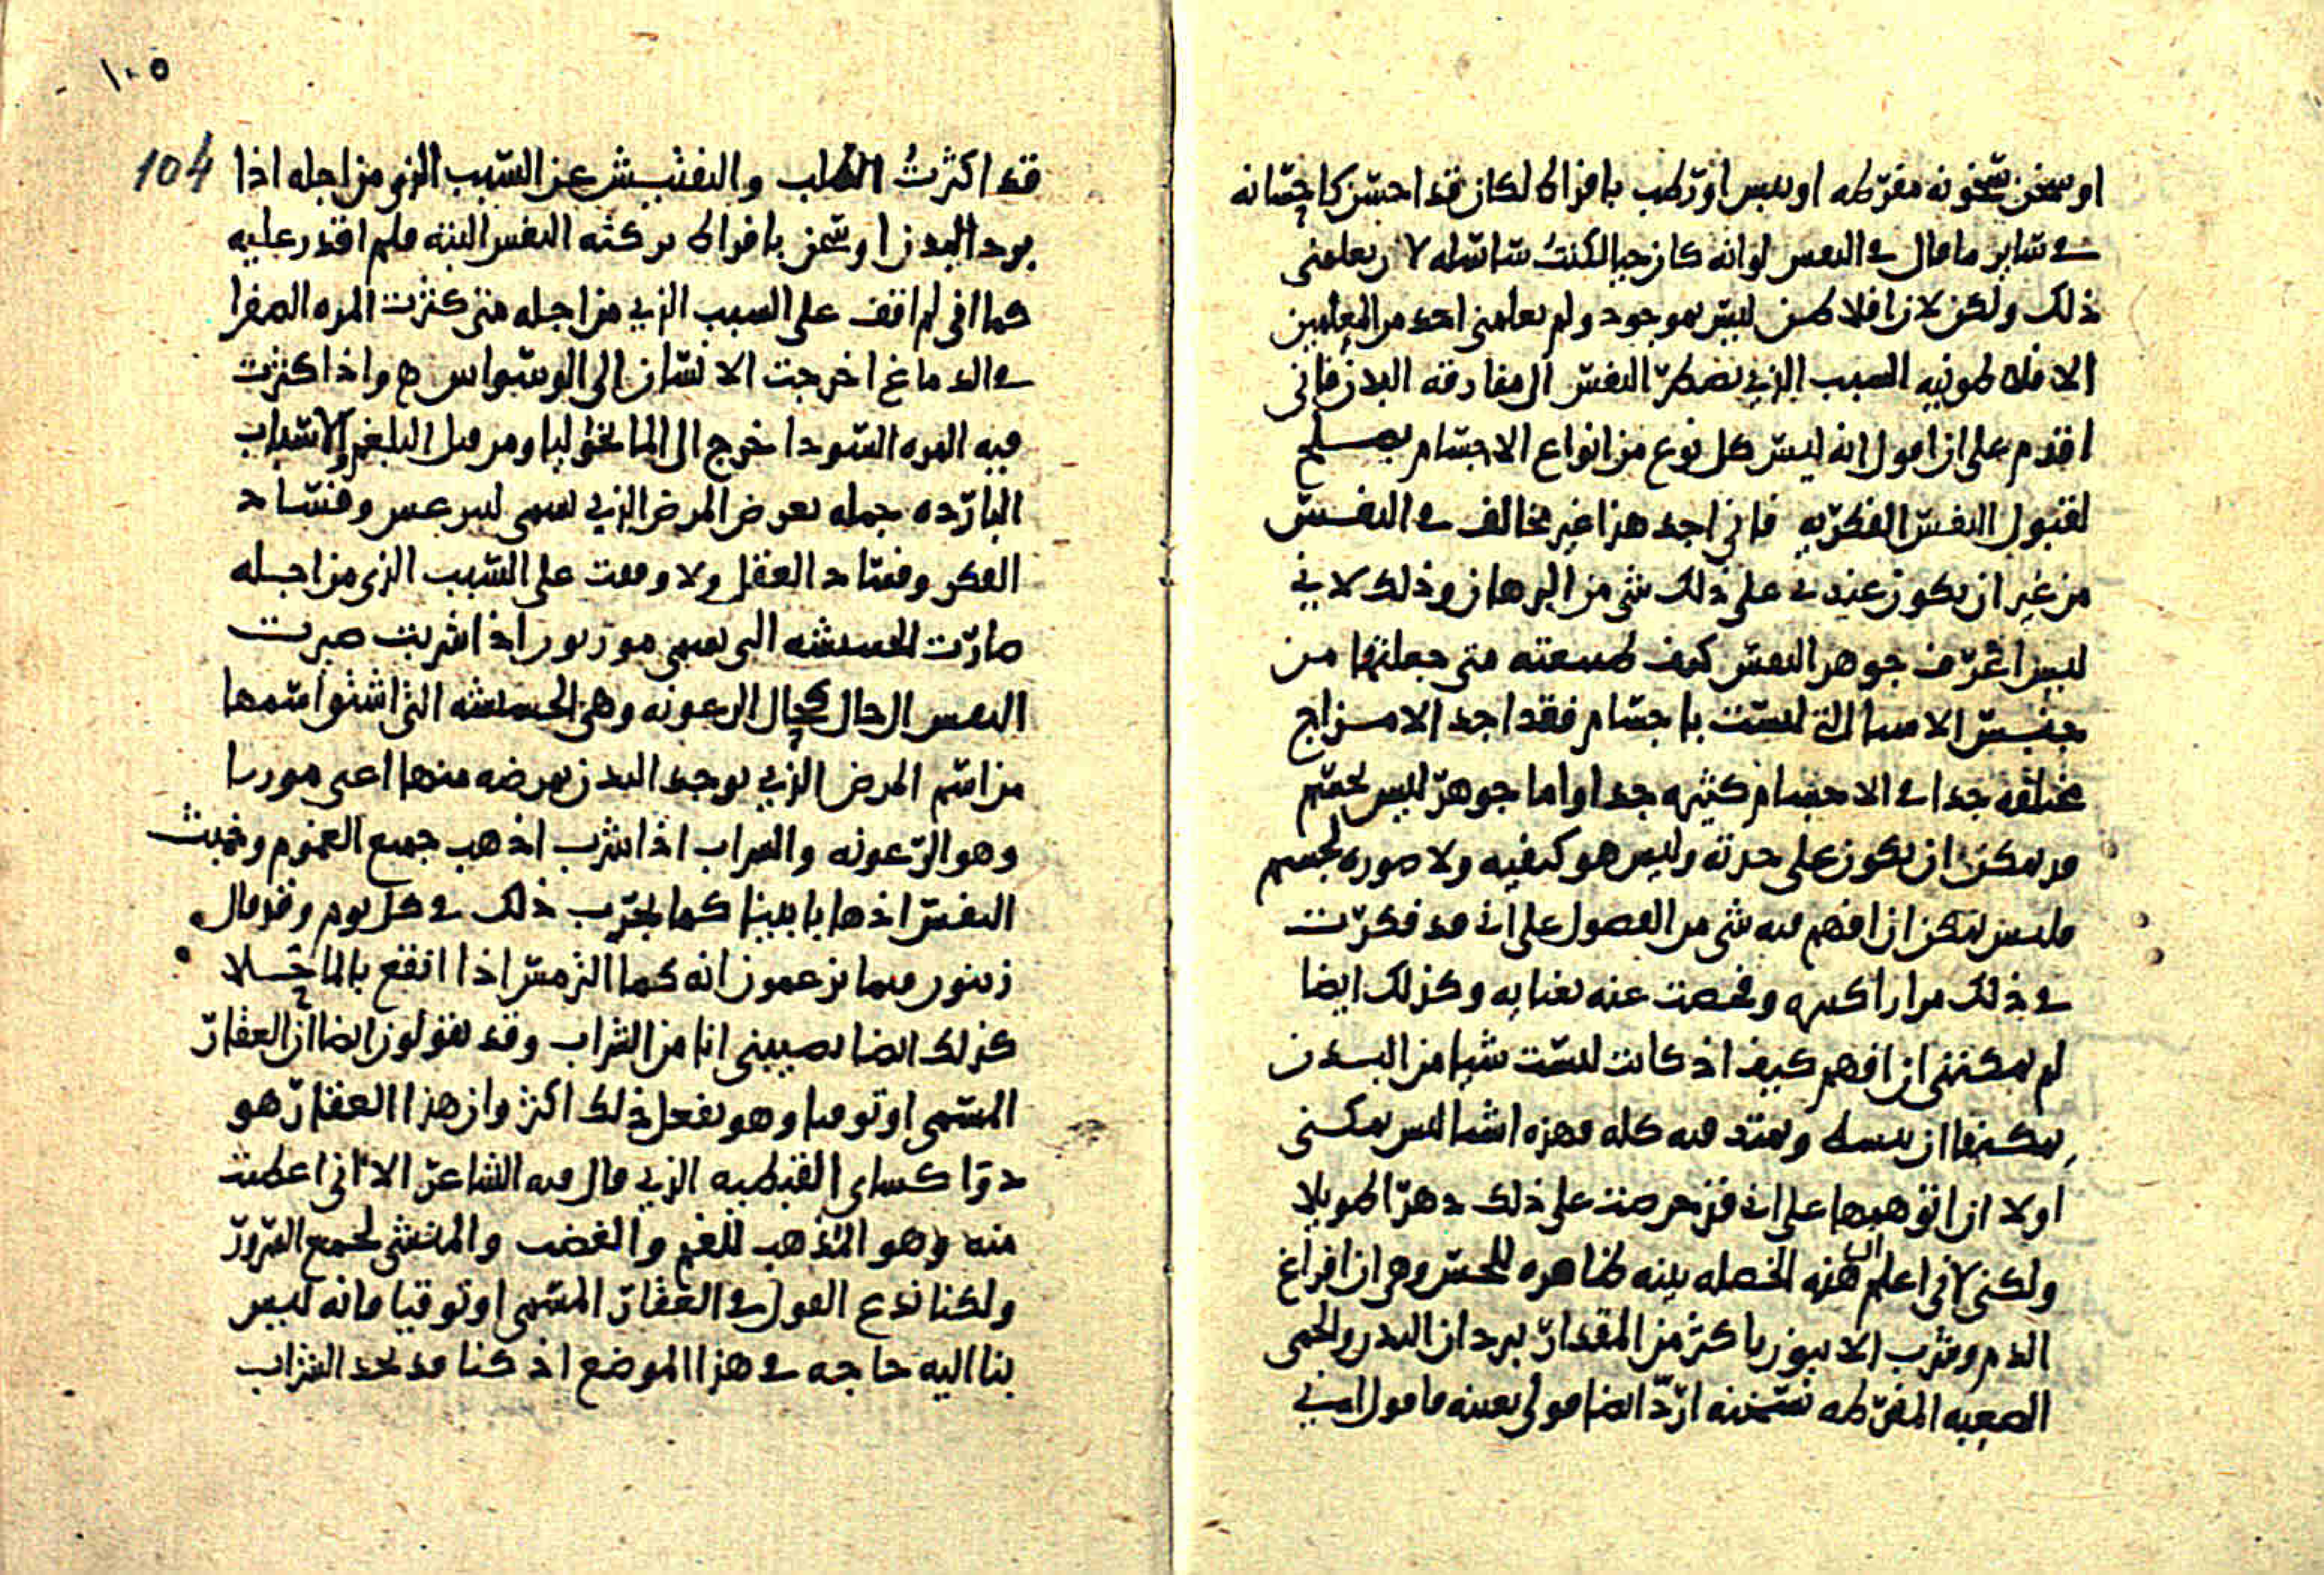 او سخن سخونه مفرطه او يبس او رطب بافراط لكان قد احسن كاحسانه
في ساير ما قال في النفس لو انه كان حيا لكنت ساسله لان يعلمني
ذلك ولكن لان افلاطن ليس بموجود ولم يعلمني احد من المعلمين
الافلاطونيه السبب الذي يضطر النفس الى مفارقه البدن فاني
اقدم على ان اقول انه ليس كل نوع من انواع الاجسام يصلح
لقبول النفس الفكريه فاني اجد هذا غير مخالف في النفس
من غير ان يكون عندي على ذلك شي من البرهان وذلك لاني
ليس اعرف جوهر النفس كيف طبيعته متى جعلتها من
جنس الاشيا التي ليست باجسام فقد اجد الامزاج
مختلفه جدا في الاجسام كثيره جدا واما جوهر ليس بجسم
قد يمكن ان يكون على حدته وليس هو كيفيه ولا صوره لجسم
فليس يمكن ان افهم فيه شي من الفصول على اني قد فكرت
في ذلك مرارا كثيره وفحصت عنه بعنايه وكذلك ايضا
لم يمكنني ان افهم كيف اذ كانت ليست شيا من البدن
يمكنها ان تنبسط وتمتد فيه كله فهذه اشيا ليس يمكنني
ولا ان اتوهمها على اني قد حرصت على ذلك دهرا طويلا
ولكني لاني اعلم ان هذه الخصله بينه ظاهره للحس وهي ان افراغ
الدم وشرب الافيون باكثر من المقدار يبردان البدن والحمى
الصعبه المفرطه تسخنه ارد ايضا قولي بعينه فاقول انني
١٠٥
104
قد اكثرت الطلب والتفتيش عن السبب الذي من اجله اذا
برد البدن او سخن بافراط تركته النفس البته فلم اقدر عليه
كما اني لم اقف على السبب الذي من اجله متى كثرت المره الصفرا
في الدماغ اخرجت الانسان الى الوسواس واذا كثرت
فيه المره السودا خرج الى المالنخوليا ومن قبل البلغم والاسباب
البارده جمله يعرض المرض الذي يسمى ليثرغس وفساد
الفكر وفساد العقل ولا وقفت على السبب الذي من اجله
صارت الحشيشه التي تسمى موريون اذا شربت صيرت
النفس الى حال كحال الرعونه وهي الحشيشه التي اشتق اسمها
من اسم المرض الذي يوجد البدن يمرضه منها اعني موريا
وهو الرعونه والشراب اذا شرب اذهب جميع الغموم وخبث
النفس اذهابا بينا كما نجرب ذلك في كل يوم وقد قال
زينون فيما يزعمون انه كما الترمس اذا انقع بالما حلا
كذلك ايضا يصيبني انا من الشراب وقد يقولون ايضا ان العقار
المسمى اونوفيا وهو يفعل ذلك اكثر وان هذا العقار هو
دوا كساي القبطيه الذي قال فيه الشاعر الا اني اعطيت
منه وهو المذهب للغم والغضب والمنسي لجميع الشرور
ولكنا ندع القول في العقار المسمى اونوفيا فانه ليس
بنا اليه حاجه في هذا الموضع اذ كنا قد نجد الشراب